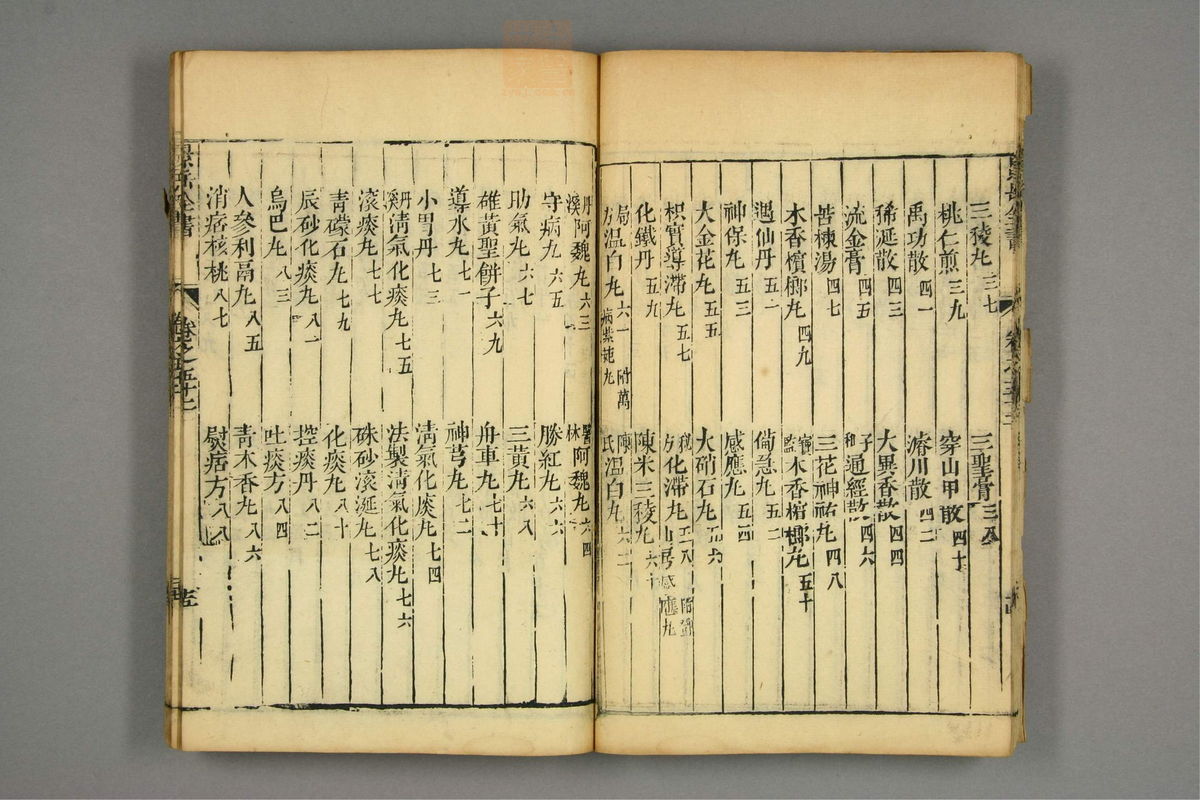 三稜丸三七　三聖膏三八
桃仁煎三九　穿山甲散四十
禹功散四一　濬川散四二
稀涎散四三　大異香散四四
流金膏四五　子和通經散四六
苦楝湯四七　三花神祐丸四八
木香檳榔丸四九　寶鑑木香檳榔丸五十
遇仙丹五一　備急丸五二
神保丸五三　感應丸五四
大金花丸五五　大硝石丸五六
枳實導滯丸五七　秘方化滯丸五八
化鐵丹五九　陳米三稜丸六十
局方溫白丸六一 附萬病紫菀丸　陳氏溫白丸六二
丹溪阿魏丸六三　醫林阿魏丸六四
守病丸六五　勝紅丸六六
助氣丸六七　三黃丸六八
雄黃聖餅子六九　舟車丸七十
導水丸七一　神芎丸七二
小胃丹七三　清氣化痰丸七四
丹溪清氣化痰丸七五　法製清氣化痰丸七六
滾痰丸七七　硃砂滾涎丸七八
青礞石丸七九　化痰丸八十
辰砂化痰丸八一　控痰丹八二
烏巴丸八三　吐痰方八四
人參利膈丸八五　青木香丸八六
消痞核桃八七　熨痞方八八
景岳全書　卷之五十二